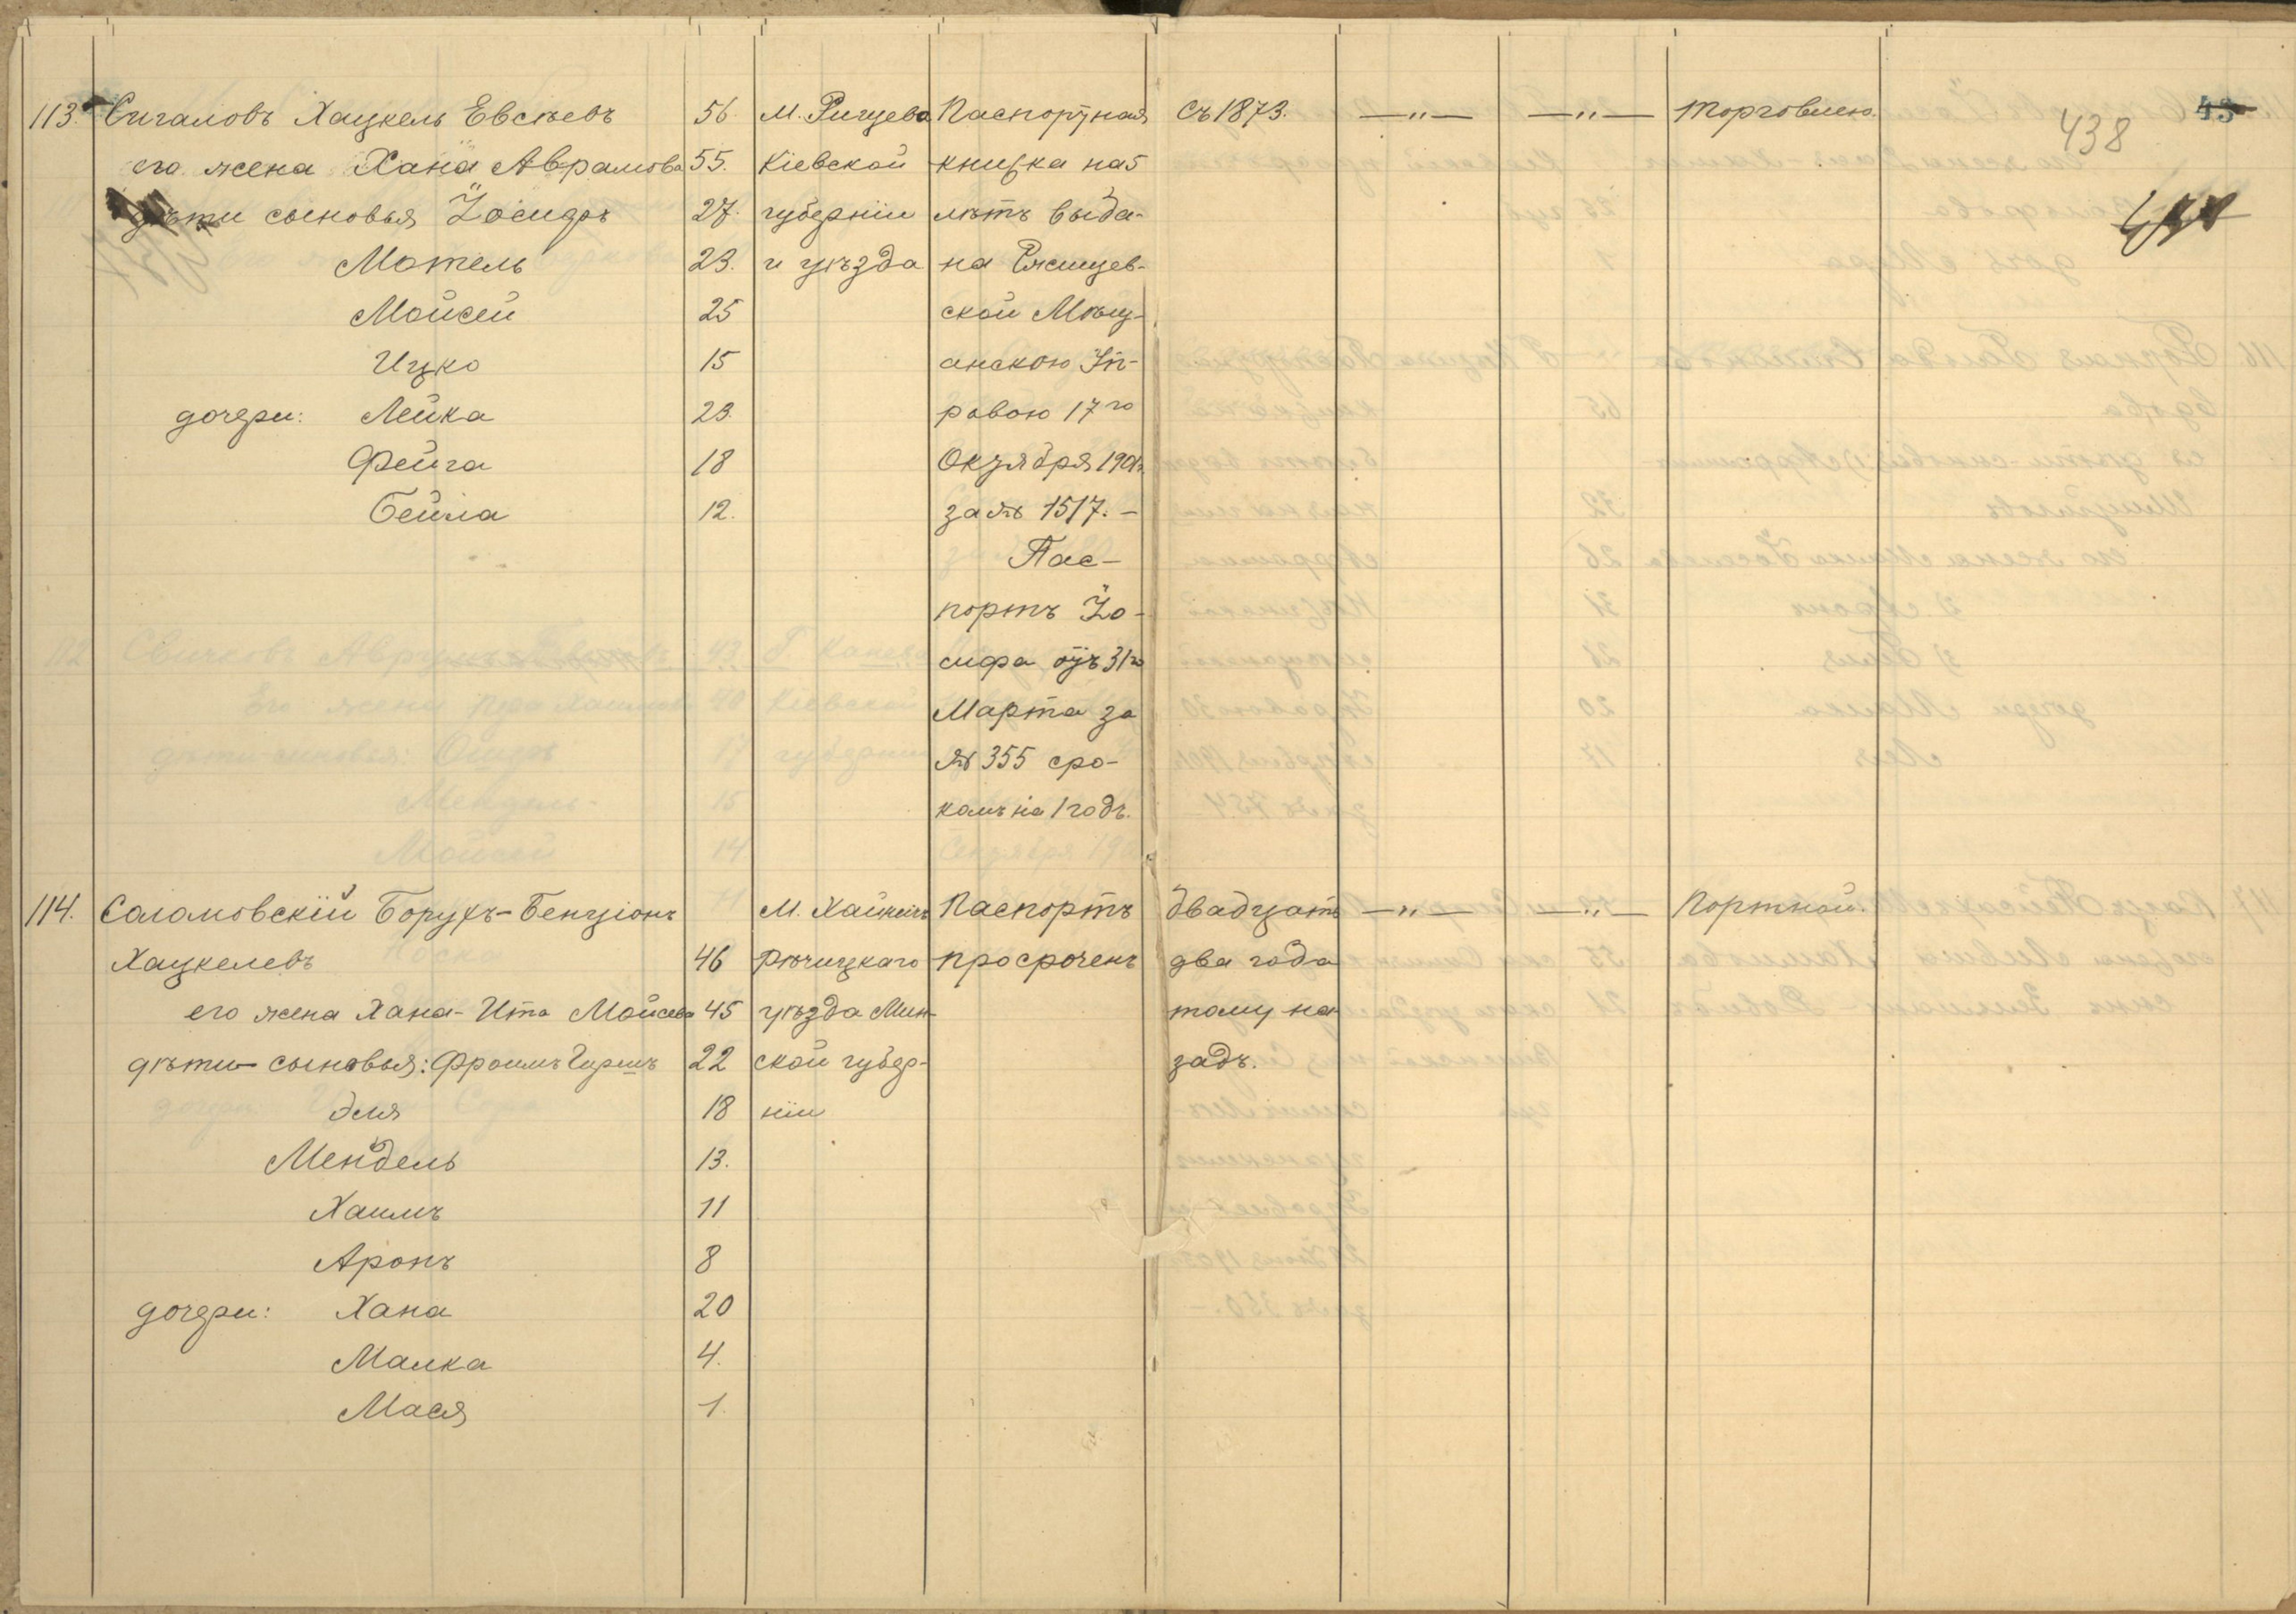 113. Сигаловъ Хацкель Евсѣевъ 56. М. Рищева Паспортная Съ 1873. —"— —"— Торговлею. 43
438
его жена Хана Аврамова 55. Кіевской книжка на 5
дѣти сыновья Іосифъ 27. губерніи лѣтъ выда-
Мотель 23. и уѣзда на Ржищев-
Мойсей 25 ской Мѣщ-
Ицко 15 анскою Уп-
дочери: Лейка 23. равою 17го
Фейга 18 Октября 1901г
Бейла 12. за № 1517. —
Пас-
портъ Іо-
сифа отъ 31го
Марта за
№ 355 сро-
комъ на 1 годъ.
114. Саломовскій Борухъ-Бенціонъ М. Хайники Паспортъ двадцать —"— —"— Портной.
Хацкелевъ 46 Рѣчицкаго просроченъ два года
его жена Хана-Ита Мойсева 45 уѣзда Мин- тому на-
дѣти сыновья: Фроимъ Гиршъ 22 ской губер- задъ.
Эля 18 ніи
Мендель 13.
Хаимъ 11
Аронъ 8
дочери: Хана 20
Малка 4.
Мася 1.